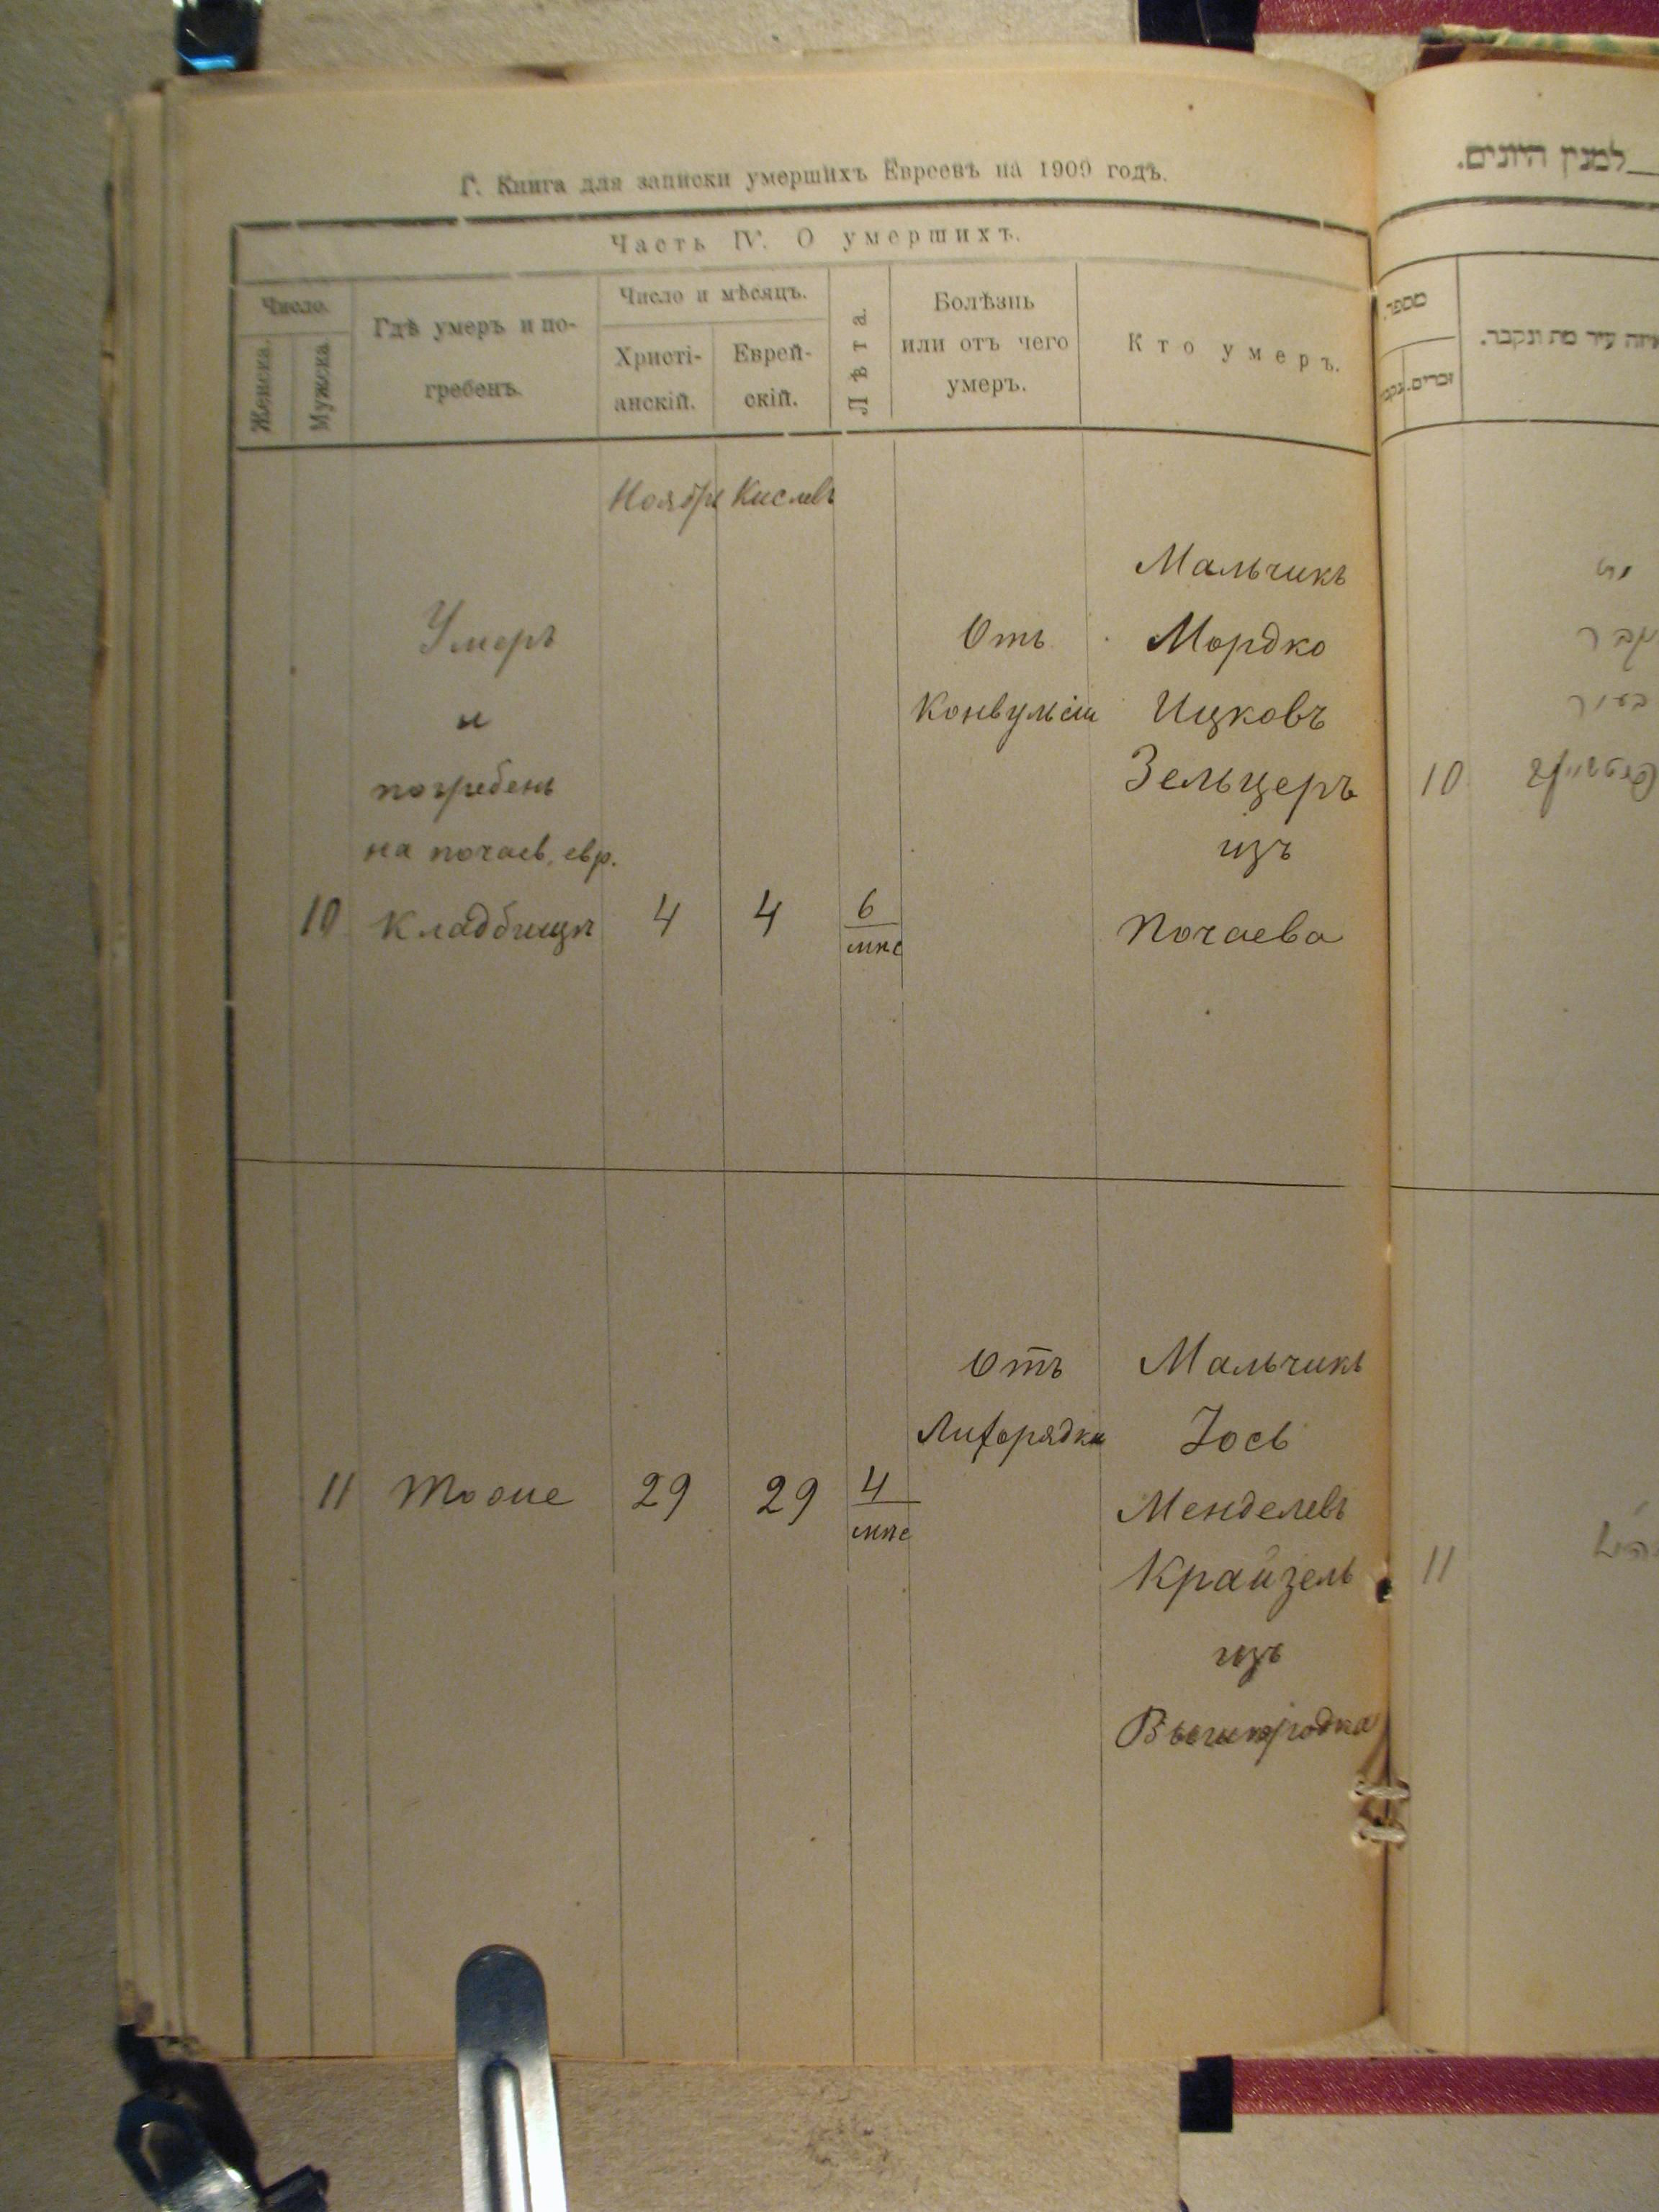 Г. Книга для записки умершихъ Евреевъ на 1909 годъ.
Часть IV. О умершихъ.
Число.
Женска.
Мужска.
Гдѣ умеръ и по-
гребенъ.
Число и мѣсяцъ.
Христі-
анскій.
Еврей-
скій.
Лѣта.
Болѣзнь
или отъ чего
умеръ.
Кто умеръ.
Ноября Кислевъ
Умеръ
и
погребенъ
на почаев. евр.
10 Кладбищѣ 4 4 6
мѣс
Отъ
Конвульсіи
Мальчикъ
Мордко
Ицковъ
Зельцеръ
изъ
Почаева
11 Тоже 29 29 4
мѣс
Отъ
Лихорядки
Мальчикъ
Іось
Менделевъ
Крайзель
изъ
למנין היונים.
מספר
זכרים.
עיר מת ונקבר.
10
11